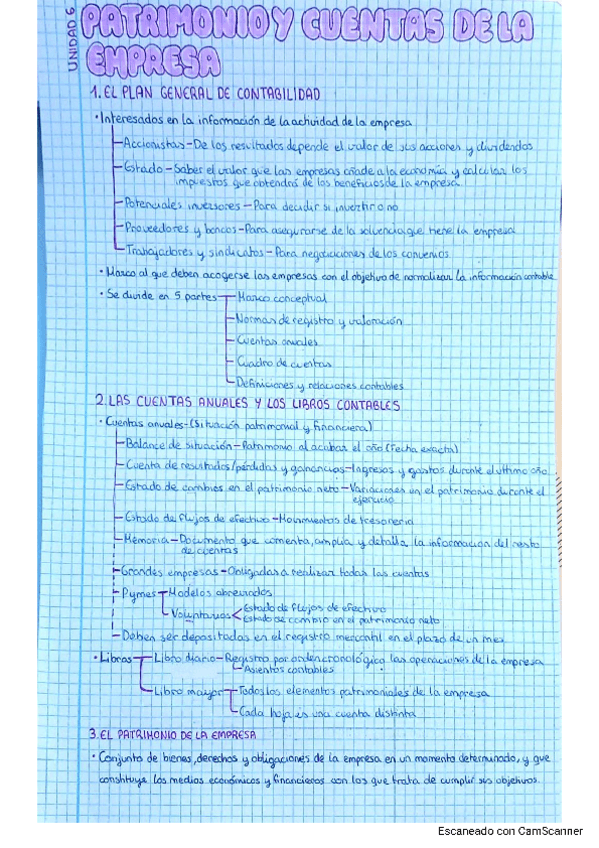 UNIDAD 6
PATRIMONIO Y CUENTAS DE LA
EMPRESA
1. EL PLAN GENERAL DE CONTABILIDAD
· Interesados en la información de la actividad de la empresa
Accionistas - De los resultados depende el valor de sus acciones y dividendos
Estado - Saber el valor que las empresas añade a la economía y calcular los
impuestos que obtendrá de los beneficios de la empresa
Potenciales inversores - Para decidir si invertir o no
Proveedores y bancos - Para asegurarse de la solvencia que tiene la empresa
Trabajadores y sindicatos - Para negociaciones de los convenios
· Marco al que deben acogerse las empresas con el objetivo de normalizar la información contable
· Se divide en 5 partes Marco conceptual
Normas de registro y valoración
Cuentas anuales
Cuadro de cuentas
Definiciones y relaciones contables
2. LAS CUENTAS ANUALES Y LOS LIBROS CONTABLES
· Cuentas anuales - (Situación patrimonial y financiera)
Balance de situación - Patrimonio al acabar el año (Fecha exacta)
Cuenta de resultados/pérdidas y ganancias - Ingresos y gastos durante el último año
Estado de cambios en el patrimonio neto - Variaciones en el patrimonio durante el
ejercicio
Estado de flujos de efectivo - Movimientos de tesorería
Memoria - Documento que comenta, amplía y detalla la información del resto
de cuentas
Grandes empresas - Obligadas a realizar todas las cuentas
Pymes Modelos abreviados
Voluntarios Estado de flujos de efectivo
Estado de cambio en el patrimonio neto
Deben ser depositadas en el registro mercantil en el plazo de un mes
· Libros Libro diario - Registra por orden cronológico las operaciones de la empresa
Asientos contables
Libro mayor Todos los elementos patrimoniales de la empresa
Cada hoja es una cuenta distinta
3. EL PATRIMONIO DE LA EMPRESA
· Conjunto de bienes, derechos y obligaciones de la empresa en un momento determinado, y que
constituye los medios económicos y financieros con los que trata de cumplir sus objetivos.
Escaneado con CamScanner